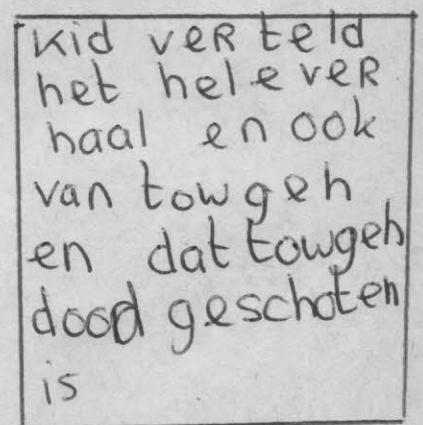 kid verteld
het helever
haal en ook
van towgeh
en dat towgeh
dood geschoten
is